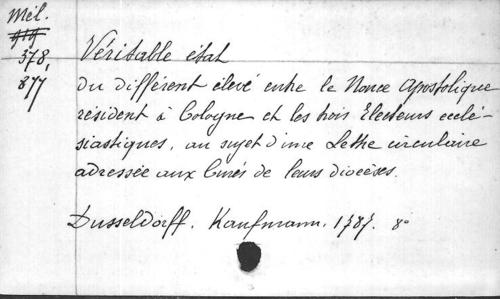 Mél.
378,
877
Véritable état
du différent élevé entre le Nonce Apostolique
résident à Cologne et les trois Electeurs ecclé-
siastiques, au sujet d'une Lettre circulaire
adressée aux Curés de leurs diocèses.
Dusseldorff. Kaufmann. 1787. 8º